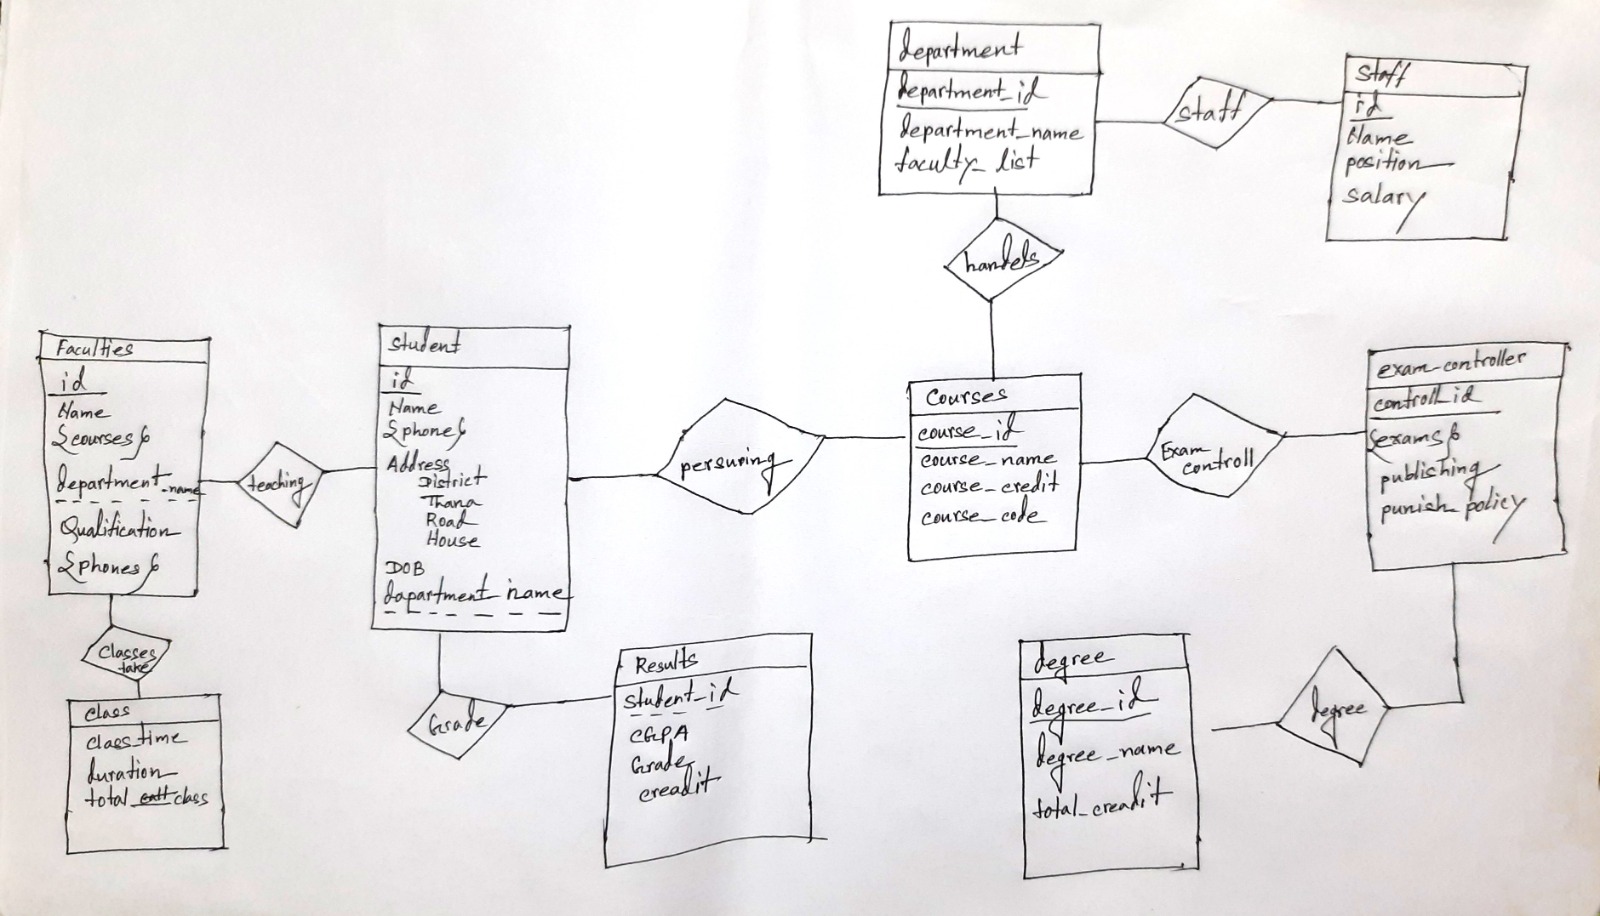 department
department_id
department_name
faculty_list
staff
Staff
id
Name
position
salary
handels
Faculties
id
Name
{courses}
department_name
Qualification
{phones}
teaching
Student
id
Name
{phone}
Address
District
Thana
Road
House
DOB
dapartment_name
persuring
Courses
course_id
course_name
course_credit
course_code
Exam
controll
exam_controller
controll_id
{exams}
publishing
punish_policy
Classes
take
class
class_time
duration
total class
Grade
Results
student_id
CGPA
Grade
creadit
degree
degree_id
degree_name
total_creadit
degree